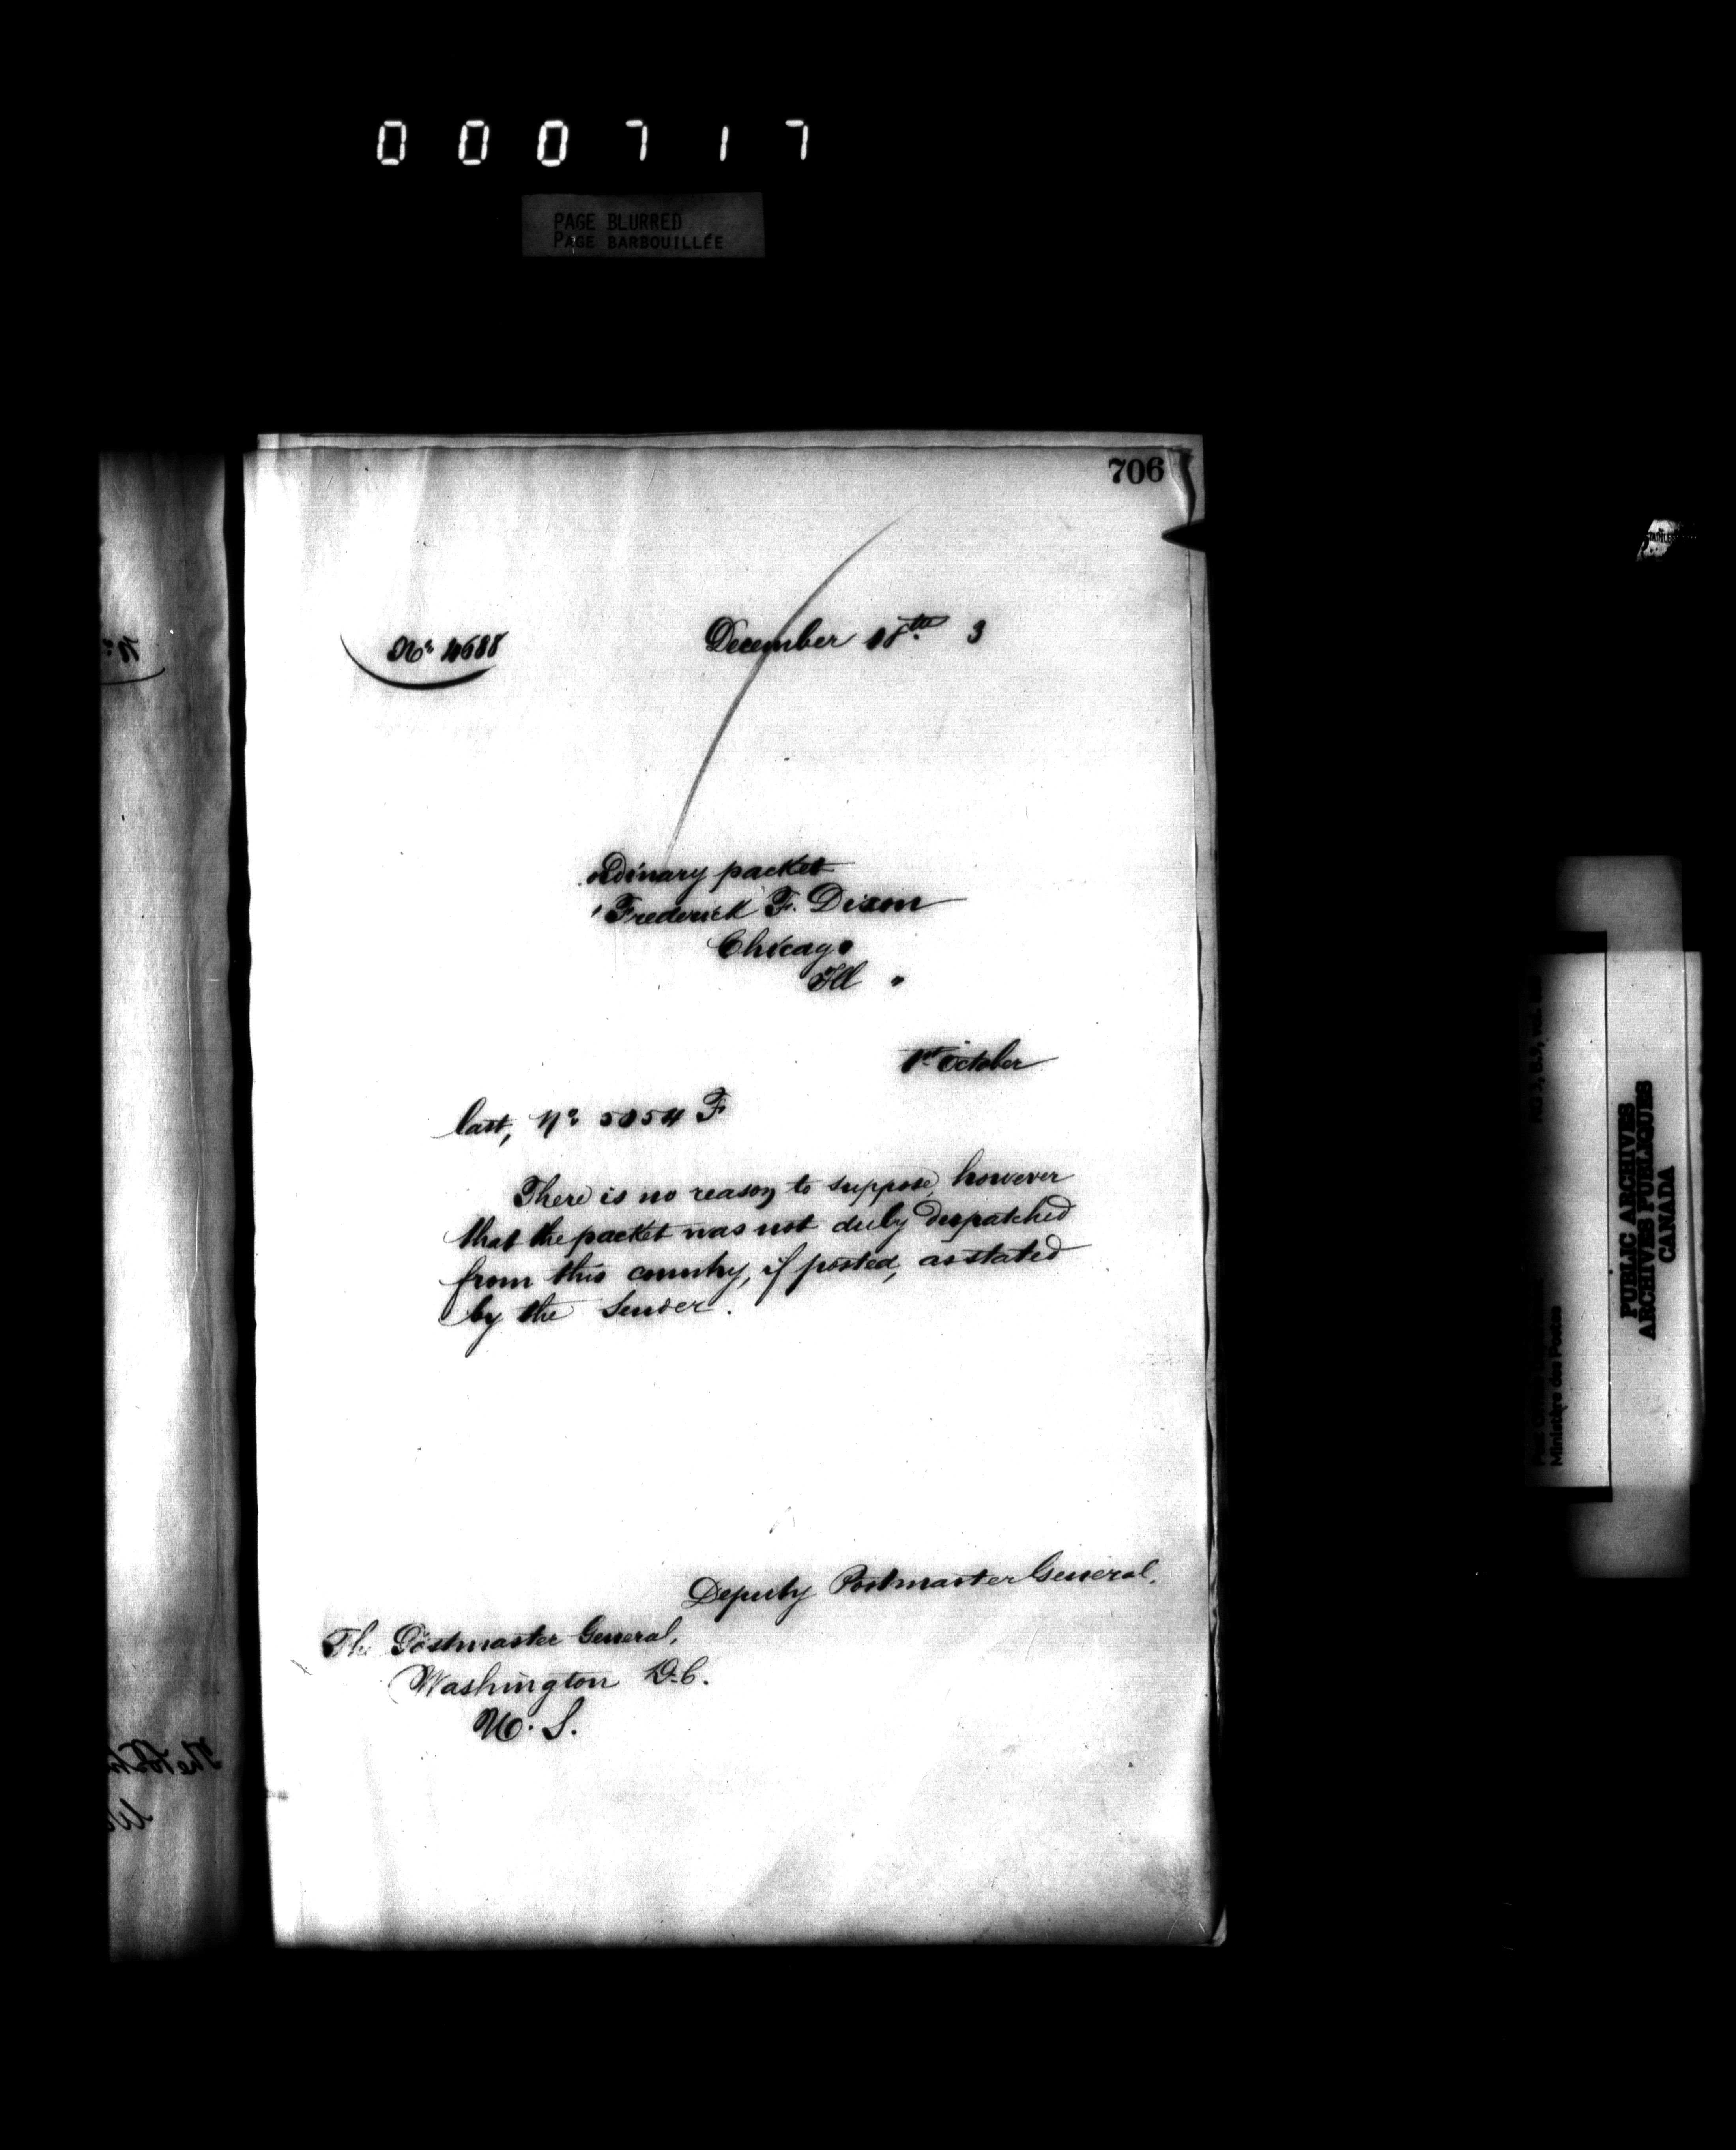 000717
PAGE BLURRED
PAGE BARBOUILLÉE
706
No. 4688
December 18th 3
ordinary packet
Frederick F. Dixon
Chicago
Ill
1st October
last, No. 5054 F
There is no reason to suppose, however
that the packet was not duly despatched
from this country, if posted, as stated
by the Sender.
Deputy Postmaster General,
The Postmaster General,
Washington D.C.
U.S.
PUBLIC ARCHIVES
ARCHIVES PUBLIQUES
CANADA
Ministère des Postes